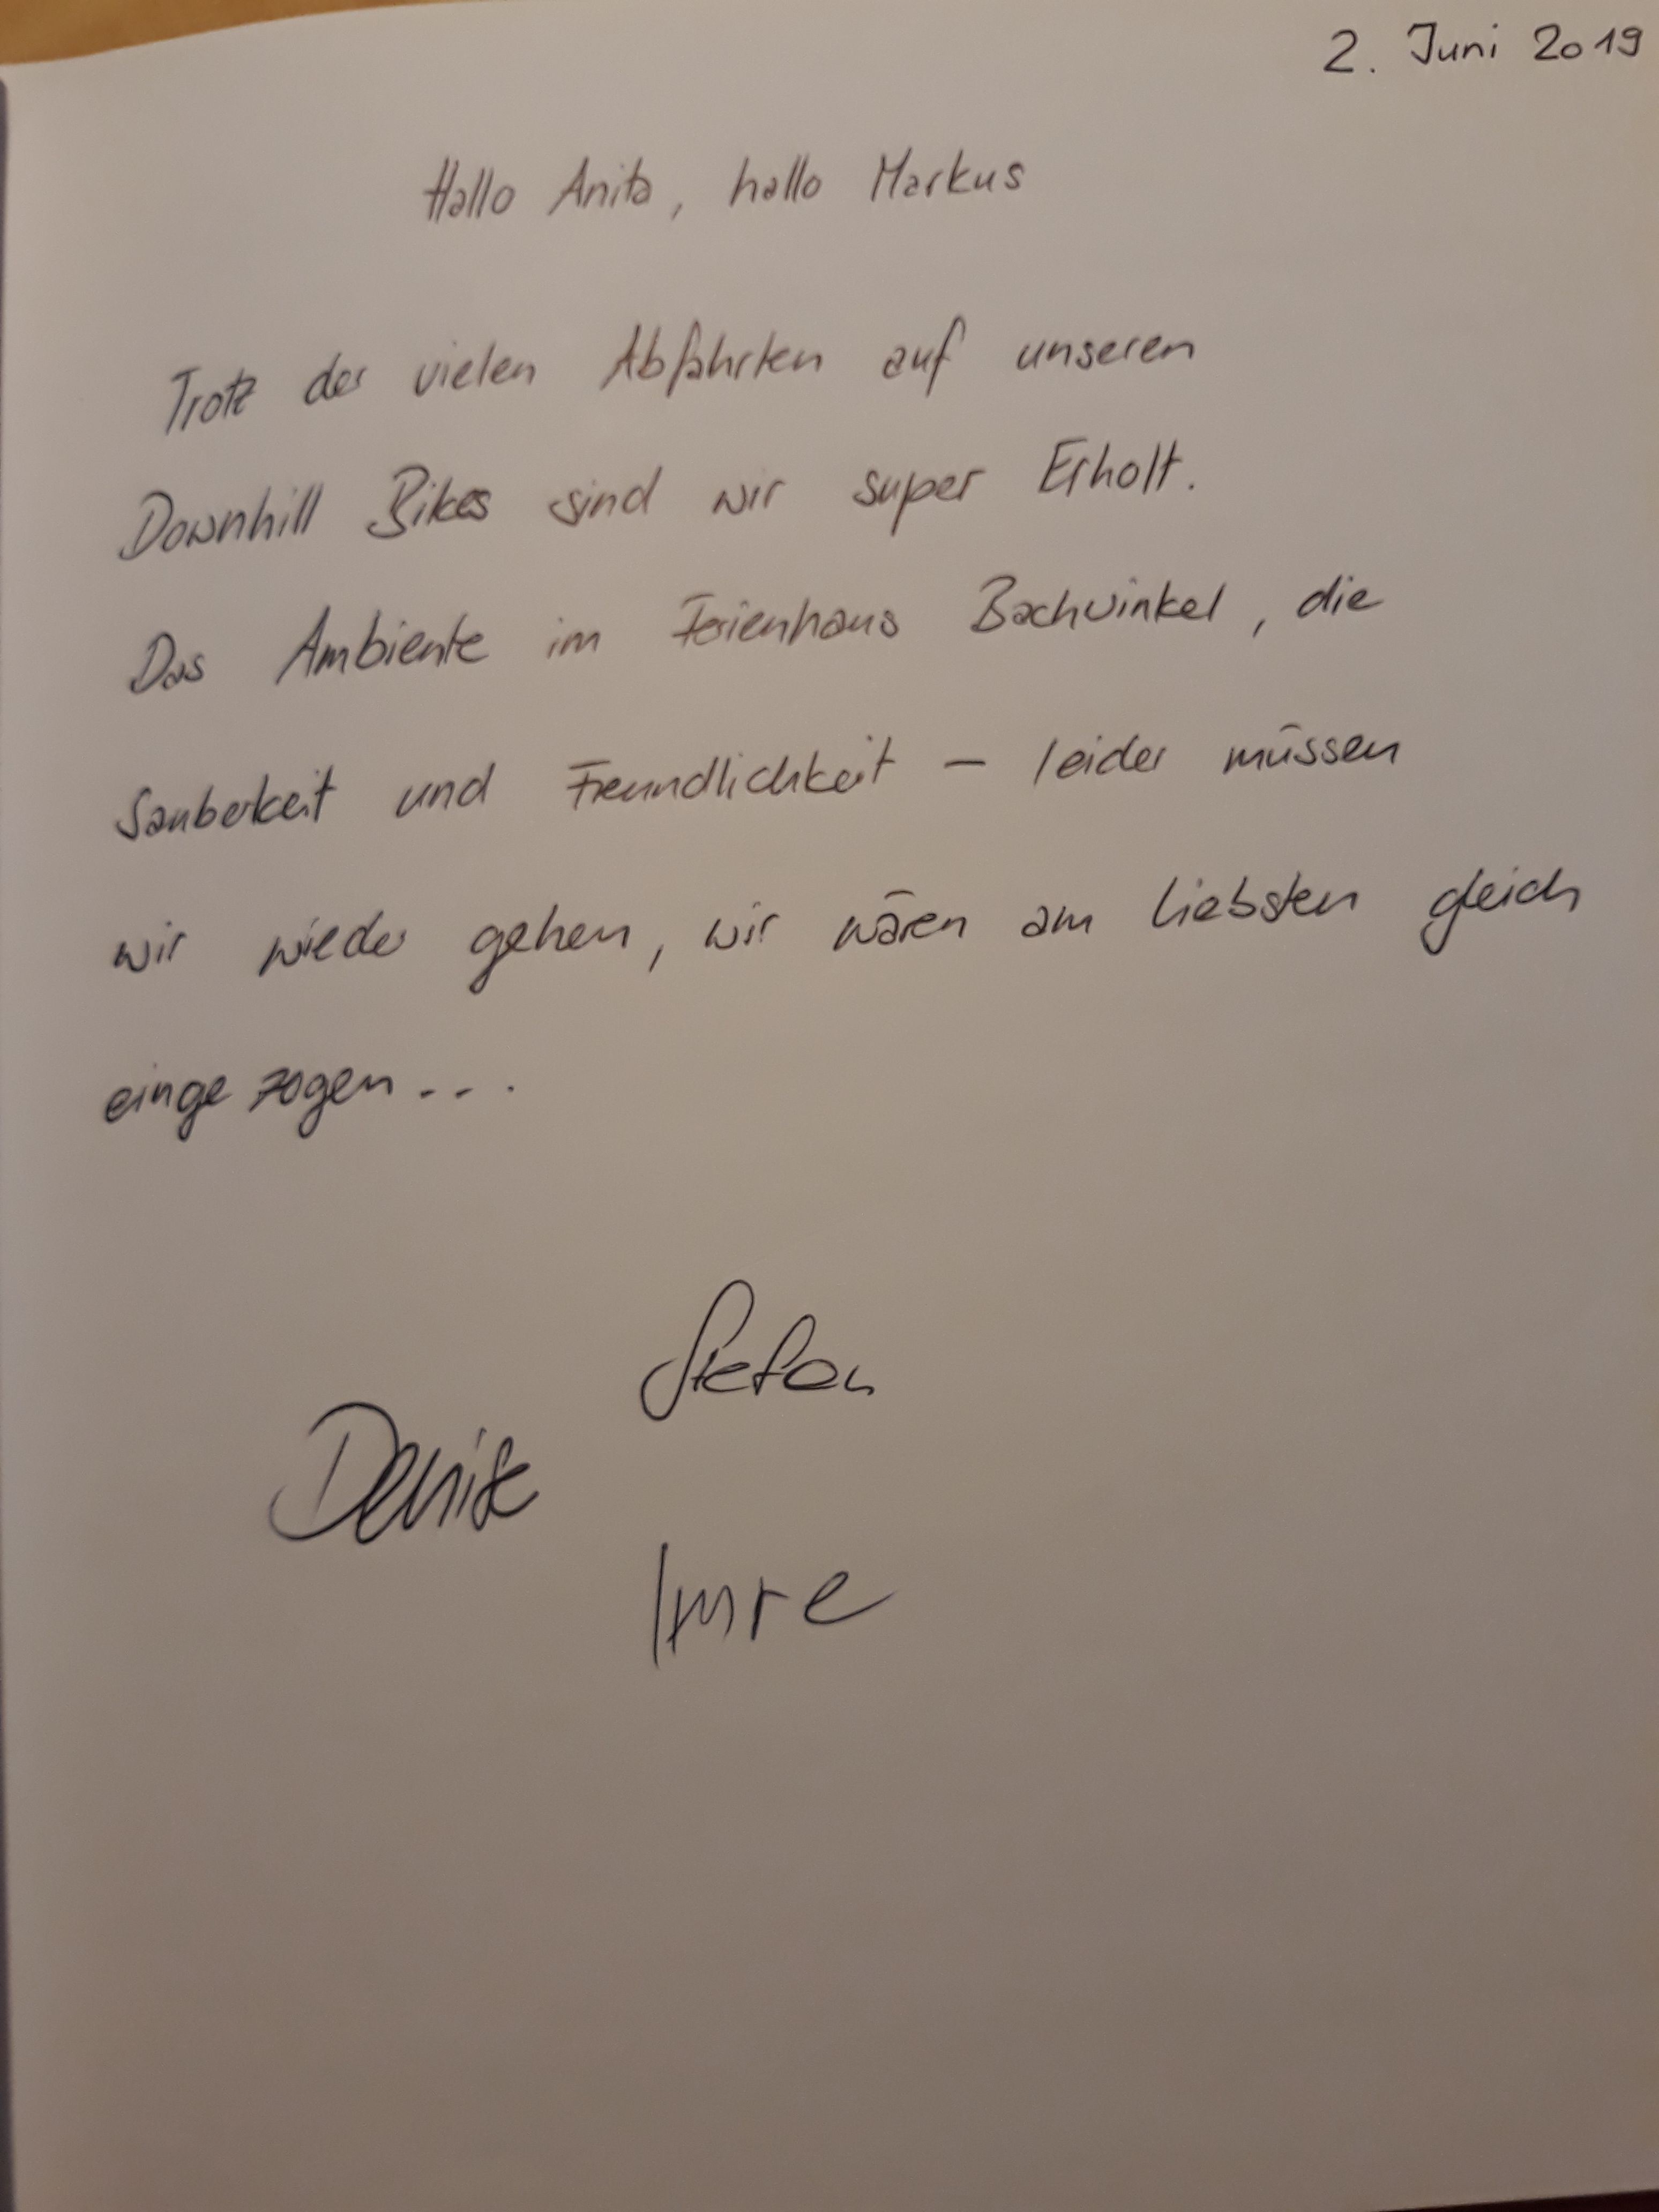 2. Juni 2019
Hallo Anita, hallo Markus
Trotz der vielen Abfahrten auf unseren
Downhill Bikes sind wir super Erholt.
Das Ambiente im Ferienhaus Bachwinkel, die
Sauberkeit und Freundlichkeit – leider müssen
wir wieder gehen, wir wären am liebsten gleich
eingezogen...
Stefan
Denise
Imre